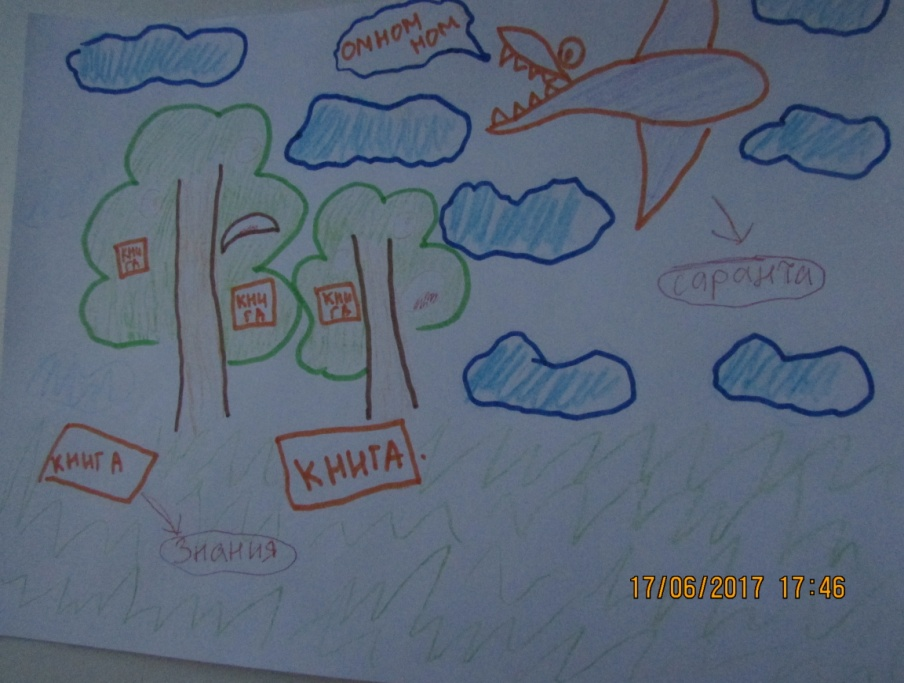 ОМНОМ
НОМ
КНИ
ГА
КНИ
ГА
КНИ
ГА
саранта
КНИГА
КНИГА.
Знания
17/06/2017 17:46